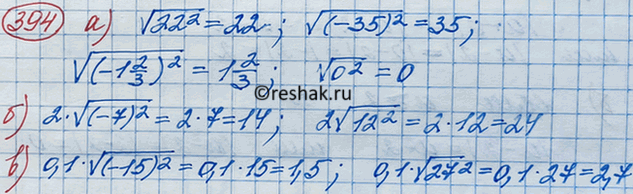 394 а) √22² = 22; √(-35)² = 35;
√(-1 2/3)² = 1 2/3; √0² = 0
©reshak.ru
б) 2·√(-7)² = 2·7 = 14; 2√12² = 2·12 = 24
в) 0,1·√(-15)² = 0,1·15 = 1,5; 0,1·√27² = 0,1·27 = 2,7